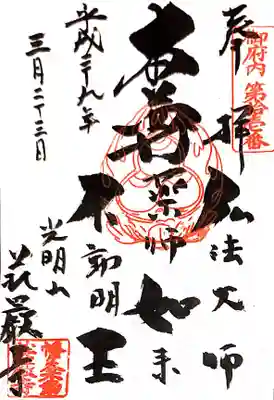 御府内 第拾壱番
奉拝
弘法大師
本尊 薬師如来
不動明王
光明山
荘厳寺
平成二十九年
三月二十三日